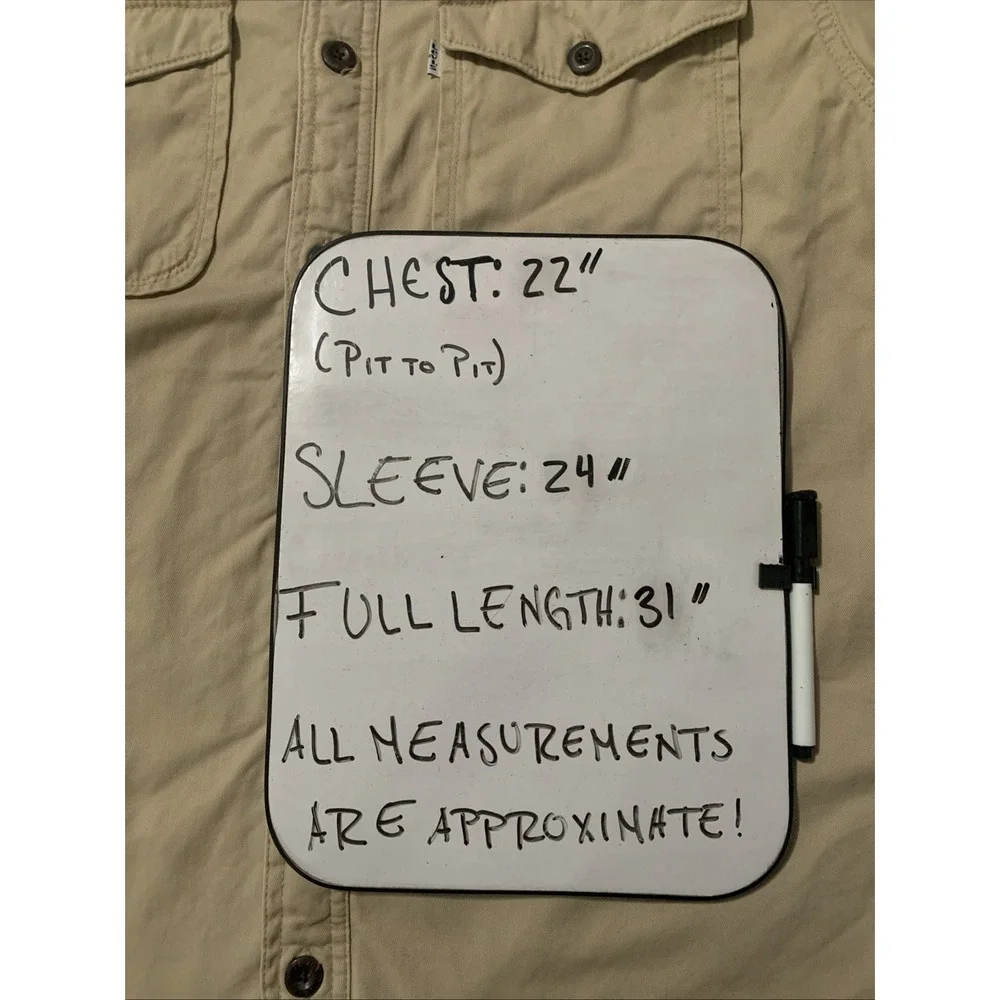 CHEST: 22"
(PIT TO PIT)
SLEEVE: 24"
FULL LENGTH: 31"
ALL MEASUREMENTS
ARE APPROXIMATE!